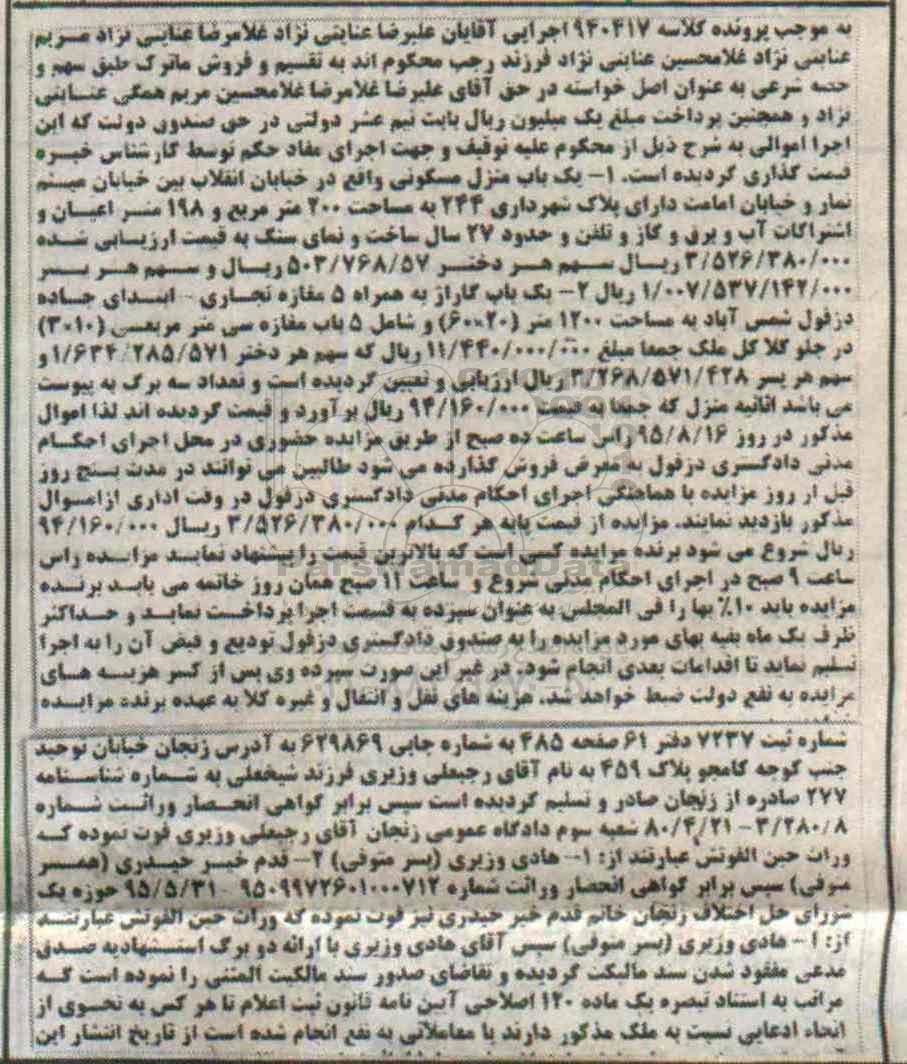 به موجب پرونده کلاسه ۹۴۰۴۱۷ اجرایی آقایان علیرضا عنایتی نژاد غلامرضا عنایتی نژاد مریم
عنایتی نژاد غلامحسین عنایتی نژاد فرزند رجب محکوم اند به تقسیم و فروش ماترک طبق سهم و
حصه شرعی به عنوان اصل خواسته در حق آقای علیرضا غلامرضا غلامحسین مریم همگی عنایتی
نژاد و همچنین پرداخت مبلغ یک میلیون ریال بابت نیم عشر دولتی در حق صندوق دولت که این
اجرا اموالی به شرح ذیل از محکوم علیه توقیف و جهت اجرای مفاد حکم توسط کارشناس خبره
قیمت گذاری گردیده است. ۱- یک باب منزل مسکونی واقع در خیابان انقلاب بین خیابان میثم
تمار و خیابان امامت دارای پلاک شهرداری ۲۴۴ به مساحت ۲۰۰ متر مربع و ۱۹۸ متر اعیان و
اشتراکات آب و برق و گاز و تلفن و حدود ۲۷ سال ساخت و نمای سنگ به قیمت ارزیابی شده
۳/۵۲۶/۳۸۰/۰۰۰ ریال سهم هر دختر ۵۰۳/۷۶۸/۵۷ ریال و سهم هر پسر
۱/۰۰۷/۵۳۷/۱۴۲/۰۰۰ ریال ۲- یک باب گاراژ به همراه ۵ مغازه تجاری - ابتدای جاده
دزفول شمس آباد به مساحت ۱۲۰۰ متر (۲۰×۶۰) و شامل ۵ باب مغازه سی متر مربعی (۱۰×۳)
در جلو کلا کل ملک جمعا مبلغ ۱۱/۴۴۰/۰۰۰/۰۰۰ ریال که سهم هر دختر ۱/۶۳۴/۲۸۵/۵۷۱ و
سهم هر پسر ۳/۲۶۸/۵۷۱/۴۲۸ ریال ارزیابی و تعیین گردیده است و تعداد سه برگ به پیوست
می باشد اثاثیه منزل که جمعا به قیمت ۹۴/۱۶۰/۰۰۰ ریال برآورد و قیمت گردیده اند لذا اموال
مذکور در روز ۹۵/۸/۱۶ راس ساعت ده صبح از طریق مزایده حضوری در محل اجرای احکام
مدنی دادگستری دزفول به معرض فروش گذارده می شود طالبین می توانند در مدت پنج روز
قبل از روز مزایده با هماهنگی اجرای احکام مدنی دادگستری دزفول در وقت اداری ازاموال
مذکور بازدید نمایند. مزایده از قیمت پایه هر کدام ۳/۵۲۶/۳۸۰/۰۰۰ ریال ۹۴/۱۶۰/۰۰۰
ریال شروع می شود برنده مزایده کسی است که بالاترین قیمت را پیشنهاد نماید مزایده راس
ساعت ۹ صبح در اجرای احکام مدنی شروع و ساعت ۱۱ صبح همان روز خاتمه می یابد برنده
مزایده باید ۱۰٪ بها را فی المجلس به عنوان سپرده به قسمت اجرا پرداخت نماید و حداکثر
ظرف یک ماه بقیه بهای مورد مزایده را به صندوق دادگستری دزفول تودیع و قبض آن را به اجرا
تسلیم نماید تا اقدامات بعدی انجام شود. در غیر این صورت سپرده وی پس از کسر هزینه های
مزایده به نفع دولت ضبط خواهد شد. هزینه های نقل و انتقال و غیره کلا به عهده برنده مزایده
شماره ثبت ۷۲۳۷ دفتر ۶۱ صفحه ۴۸۵ به شماره چاپی ۶۲۹۸۶۹ به آدرس زنجان خیابان توحید
جنب کوچه کامجو پلاک ۴۵۹ به نام آقای رجبعلی وزیری فرزند شیخعلی به شماره شناسنامه
۲۷۷ صادره از زنجان صادر و تسلیم گردیده است سپس برابر گواهی انحصار وراثت شماره
۳/۲۸۰/۸ - ۸۰/۴/۲۱ شعبه سوم دادگاه عمومی زنجان آقای رجبعلی وزیری فوت نموده که
وراث حین الفوتش عبارتند از: ۱- هادی وزیری (پسر متوفی) ۲- قدم خیر حیدری (همسر
متوفی) سپس برابر گواهی انحصار وراثت شماره ۹۵۰۹۹۷۲۶۰۱۰۰۰۷۱۲ - ۹۵/۵/۳۱ حوزه یک
شورای حل اختلاف زنجان خانم قدم خیر حیدری نیز فوت نموده که وراث حین الفوتش عبارتند
از: ۱- هادی وزیری (پسر متوفی) سپس آقای هادی وزیری با ارائه دو برگ استشهادیه صدق
مدعی مفقود شدن سند مالکیت گردیده و تقاضای صدور سند مالکیت المثنی را نموده است که
مراتب به استناد تبصره یک ماده ۱۲۰ اصلاحی آیین نامه قانون ثبت اعلام تا هر کس به نحوی از
انحاء ادعایی نسبت به ملک مذکور دارند یا معاملاتی به نفع انجام شده است از تاریخ انتشار این
ParsNamadData